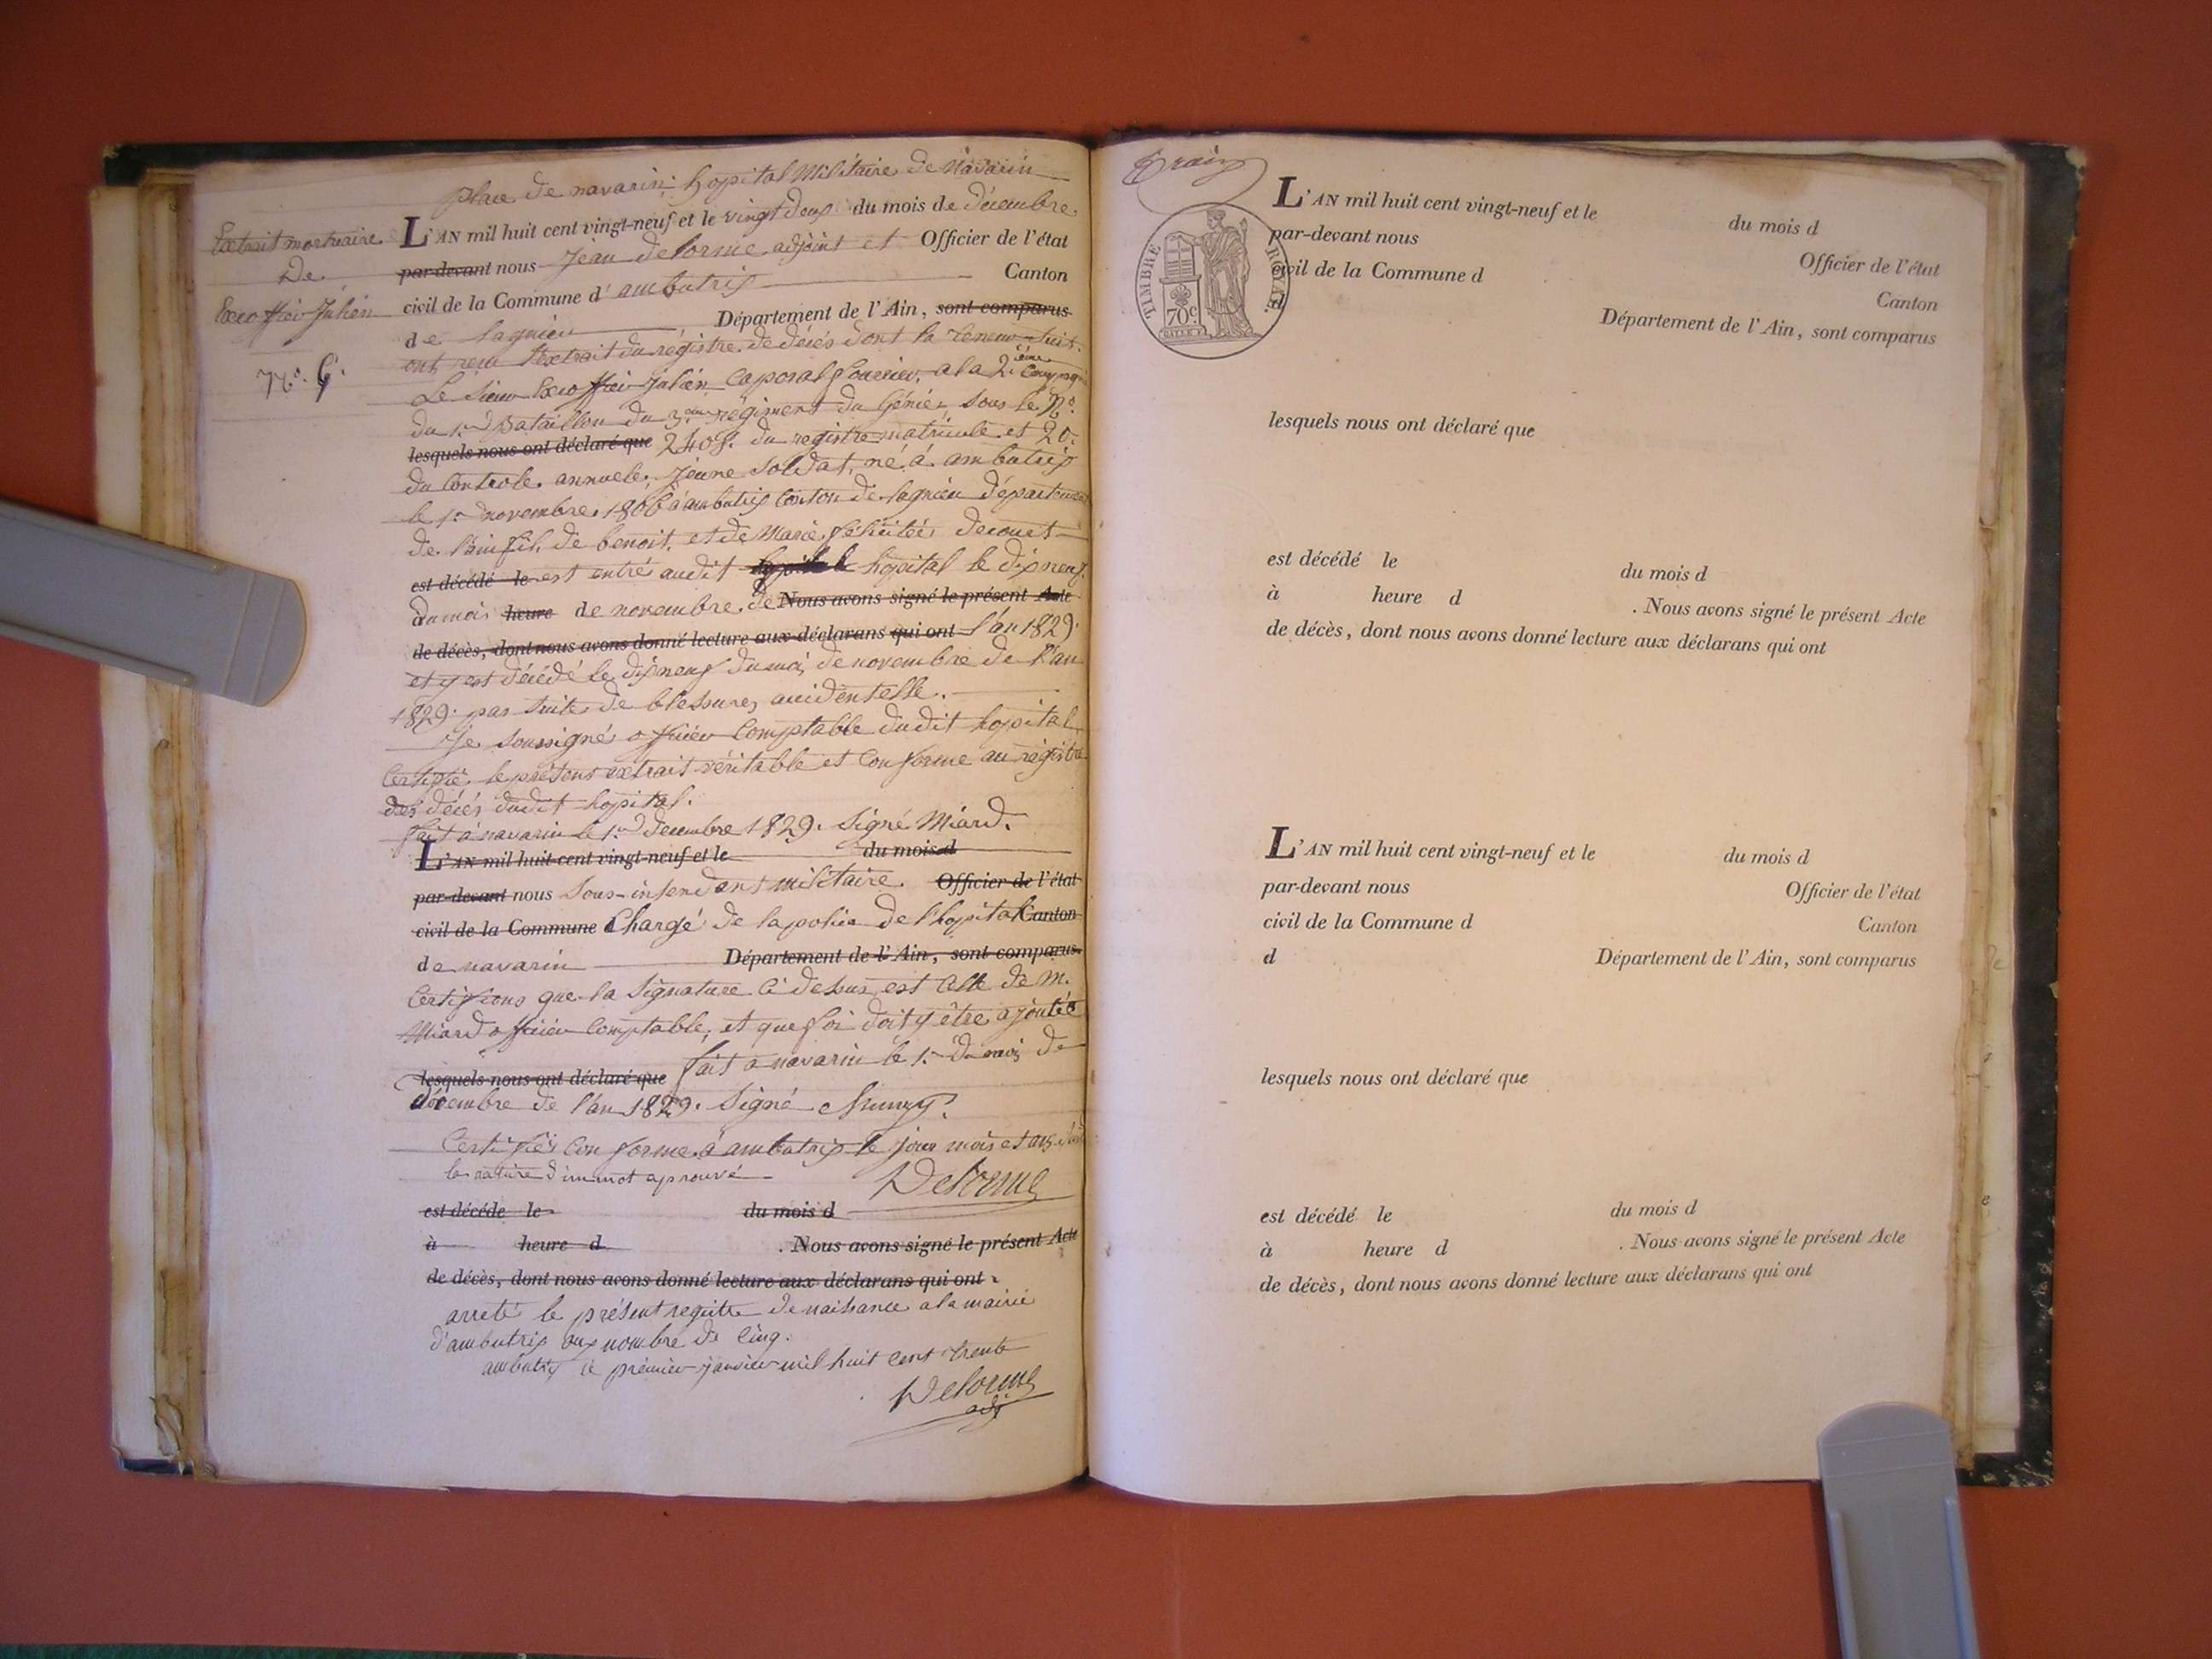 place de navarin. hopital Militaire de Navarin
Extrait mortuaire
De
Julien
N.o 6.
L'AN mil huit cent vingt-neuf et le vingt deux du mois de décembre.
par-devant nous Jean delorme adjoint et Officier de l'état
civil de la Commune d'ambutrix Canton
de lagnieu Département de l'Ain, sont comparus
ont reçu l'extrait du régistre de décés dont la teneur suit.
Le Sieur Julien Caporal fourrier, a la 2.ième Compagnie
du 1.er Bataillon du 3.ème régiment du Génie, sous le N.o
lesquels nous ont déclaré que 2408. du registre matricule et 20.
du Controle annuele, jeune Soldat, né á ambutrix
le 1.er novembre 1806 à ambutrix Canton de lagnieu département
de l'ain fils de benoit, et de Marie félicitée
est décédé le est entré audit hopital le dixneuf
du mois heure de novembre de Nous avons signé le présent Acte
de décès, dont nous avons donné lecture aux déclarans qui ont l'an 1829.
et y est décédé le dixneuf du mois de novembre de l'an
1829. par suite de blessures accidentelle.
Je soussigné officier Comptable dudit hopital
Certifie le présent extrait véritable et Conforme au régistre
des décés dudit hopital.
fait à navarin le 1.er decembre 1829. Signé Miard.
L'AN mil huit cent vingt-neuf et le du mois d
par-devant nous Sous-intendant militaire. Officier de l'état
civil de la Commune Chargé de la police de l'hopital Canton
de navarin Département de l'Ain, sont comparus
Certifions que la Signature Ci dessus est Celle de M.
Miard officier Comptable, et que foi doit y être ajoutée
lesquels nous ont déclaré que fait à navarin le 1.er du mois de
décembre de l'an 1829. Signé
Certifié Conforme à ambutrix le jour mois et an
la rature d'un mot aprouvé
Delorme
est décédé le du mois d
à heure d . Nous avons signé le présent Acte
de décès, dont nous avons donné lecture aux déclarans qui ont
arreté le présent registre de naissance a la mairie
d'ambutrix au nombre de Cinq.
ambutrix le premier janvier mil huit cent trente
Delorme
adj
TIMBRE ROYAL.
70c.
L'AN mil huit cent vingt-neuf et le du mois d
par-devant nous Officier de l'état
civil de la Commune d Canton
d Département de l'Ain, sont comparus
lesquels nous ont déclaré que
est décédé le du mois d
à heure d . Nous avons signé le présent Acte
de décès, dont nous avons donné lecture aux déclarans qui ont
L'AN mil huit cent vingt-neuf et le du mois d
par-devant nous Officier de l'état
civil de la Commune d Canton
d Département de l'Ain, sont comparus
lesquels nous ont déclaré que
est décédé le du mois d
à heure d . Nous avons signé le présent Acte
de décès, dont nous avons donné lecture aux déclarans qui ont